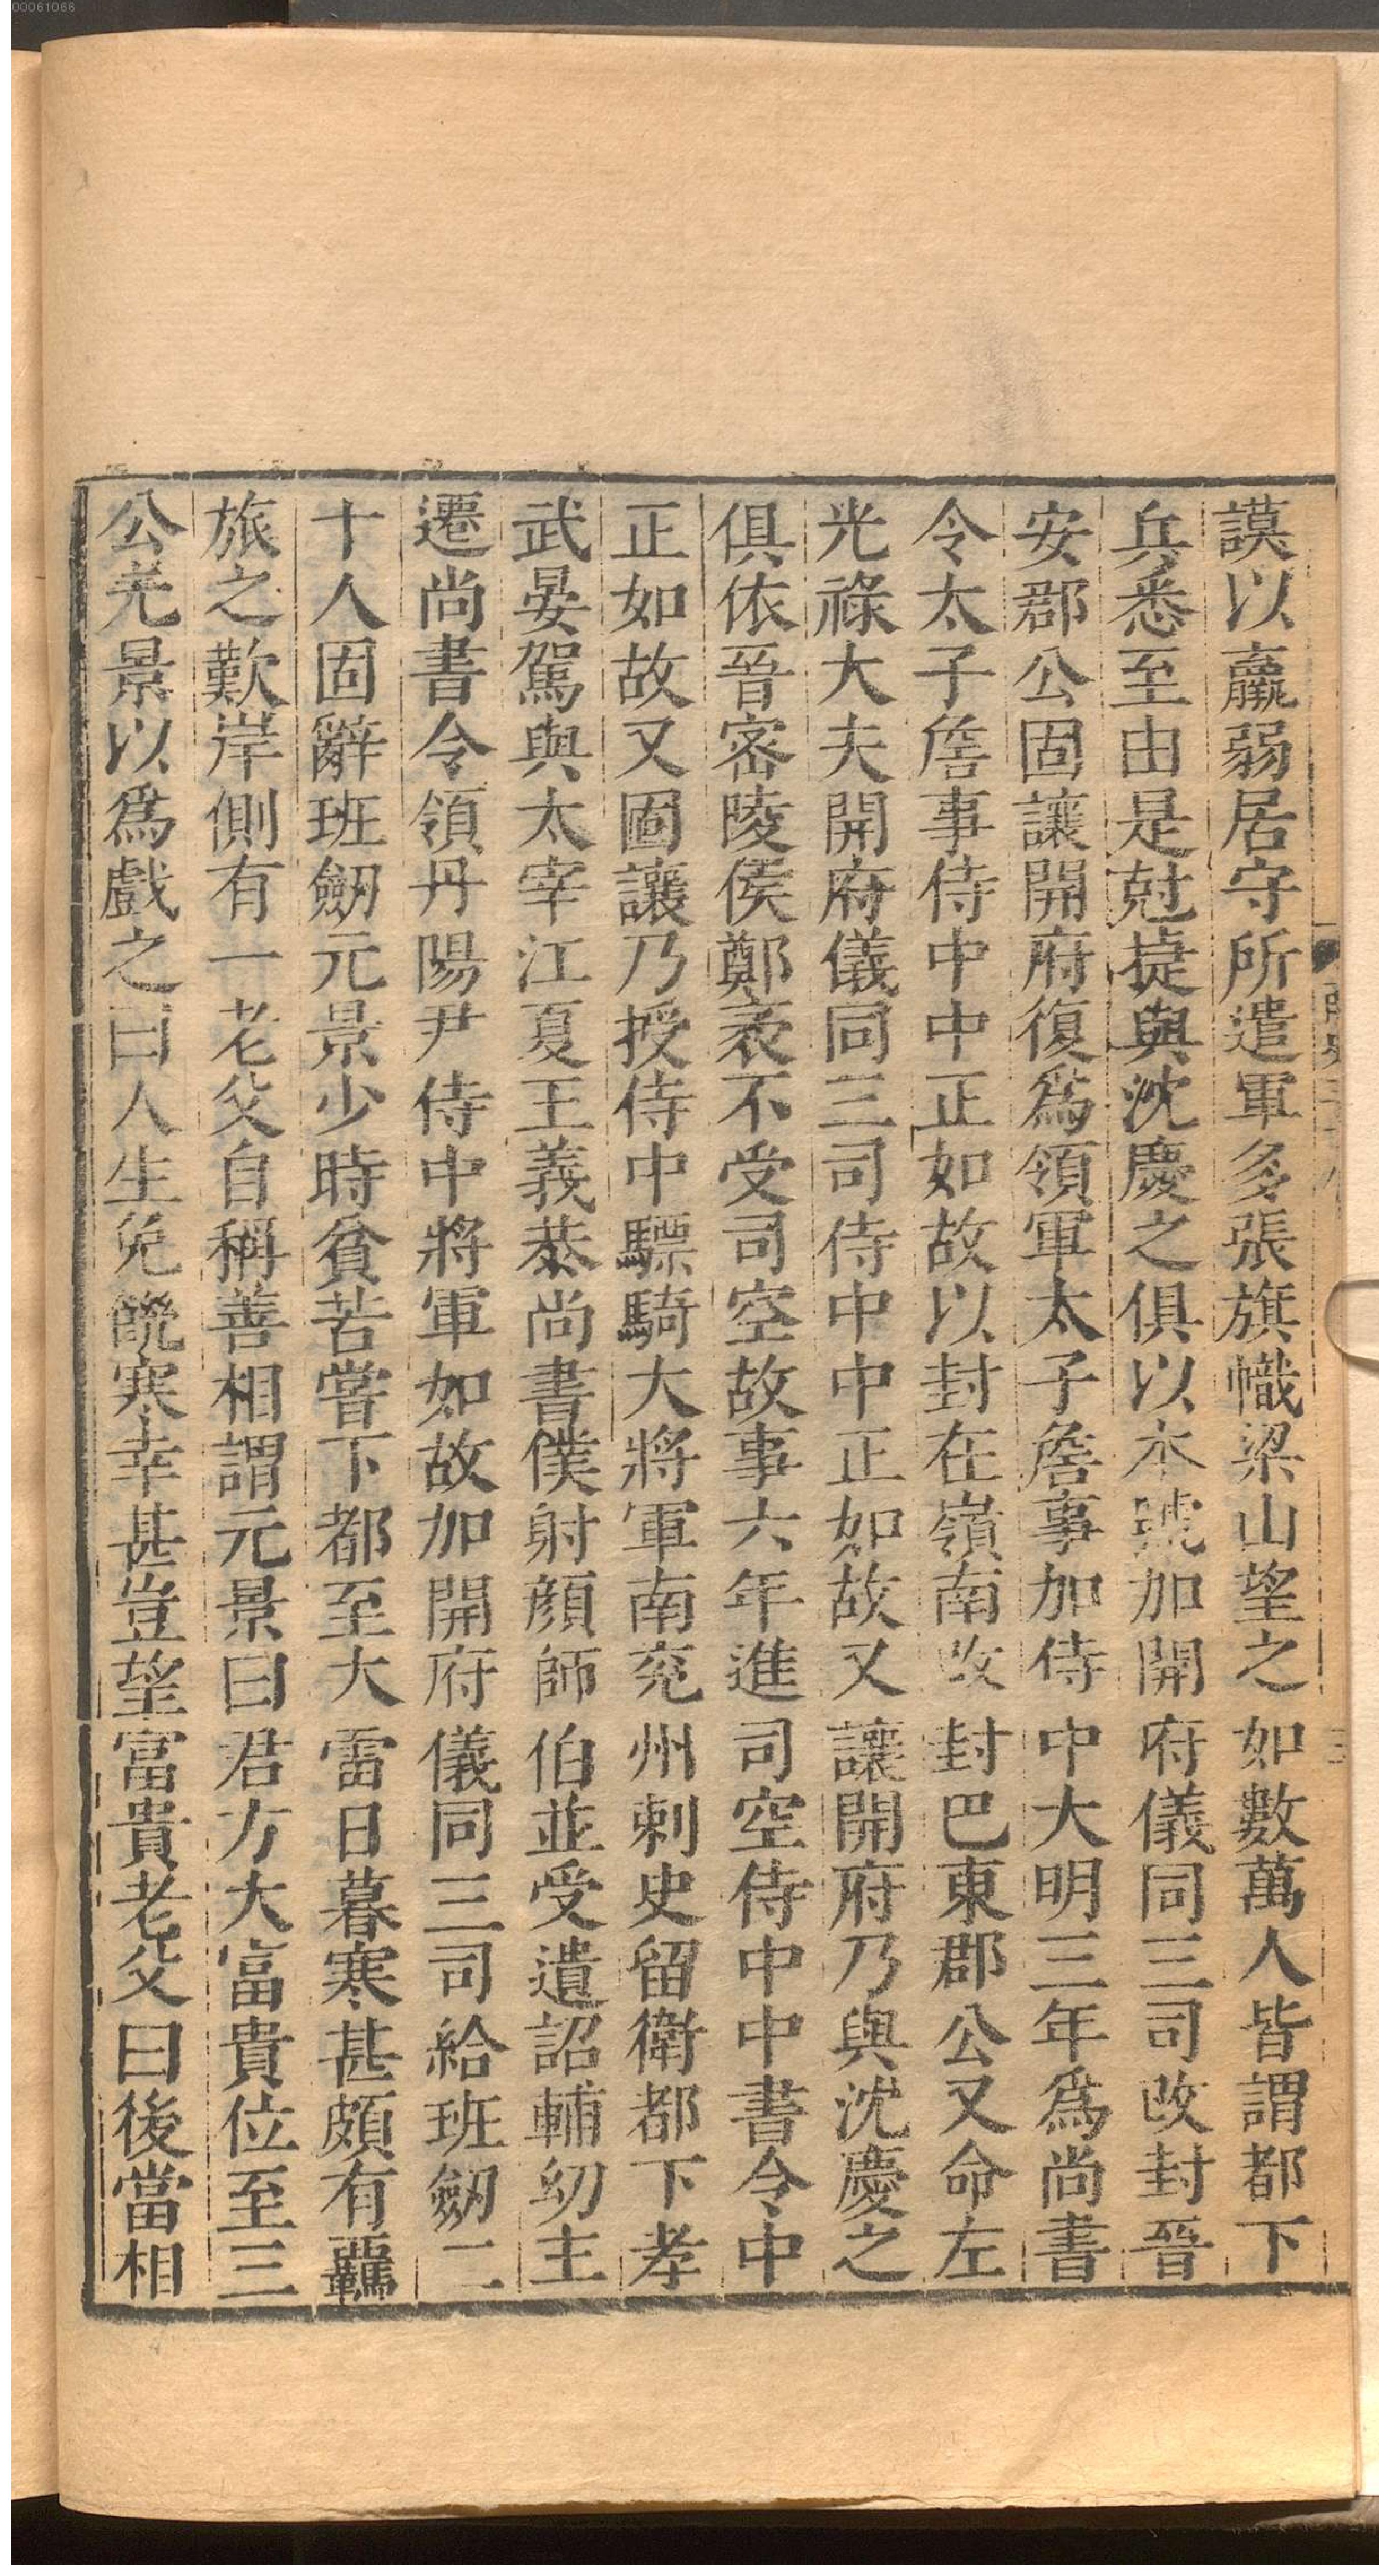 00061066
謨以羸弱居守所遣軍多張旗幟梁山望之如數萬人皆謂都下
兵悉至由是尅捷與沈慶之俱以本號加開府儀同三司改封晉
安郡公固讓開府復爲領軍太子詹事加侍中大明三年爲尚書
令太子詹事侍中中正如故以封在嶺南改封巴東郡公又命左
光祿大夫開府儀同三司侍中中正如故又讓開府乃與沈慶之
俱依晉密陵侯鄭袤不受司空故事六年進司空侍中中書令中
正如故又固讓乃授侍中驃騎大將軍南兖州刺史留衛都下孝
武晏駕與太宰江夏王義恭尚書僕射顔師伯並受遺詔輔幼主
遷尚書令領丹陽尹侍中將軍如故加開府儀同三司給班劒二
十人固辭班劒元景少時貧苦嘗下都至大雷日暮寒甚頗有羈
旅之歎岸側有一老父自稱善相謂元景曰君方大富貴位至三
公元景以爲戲之曰人生免飢寒幸甚豈望富貴老父曰後當相